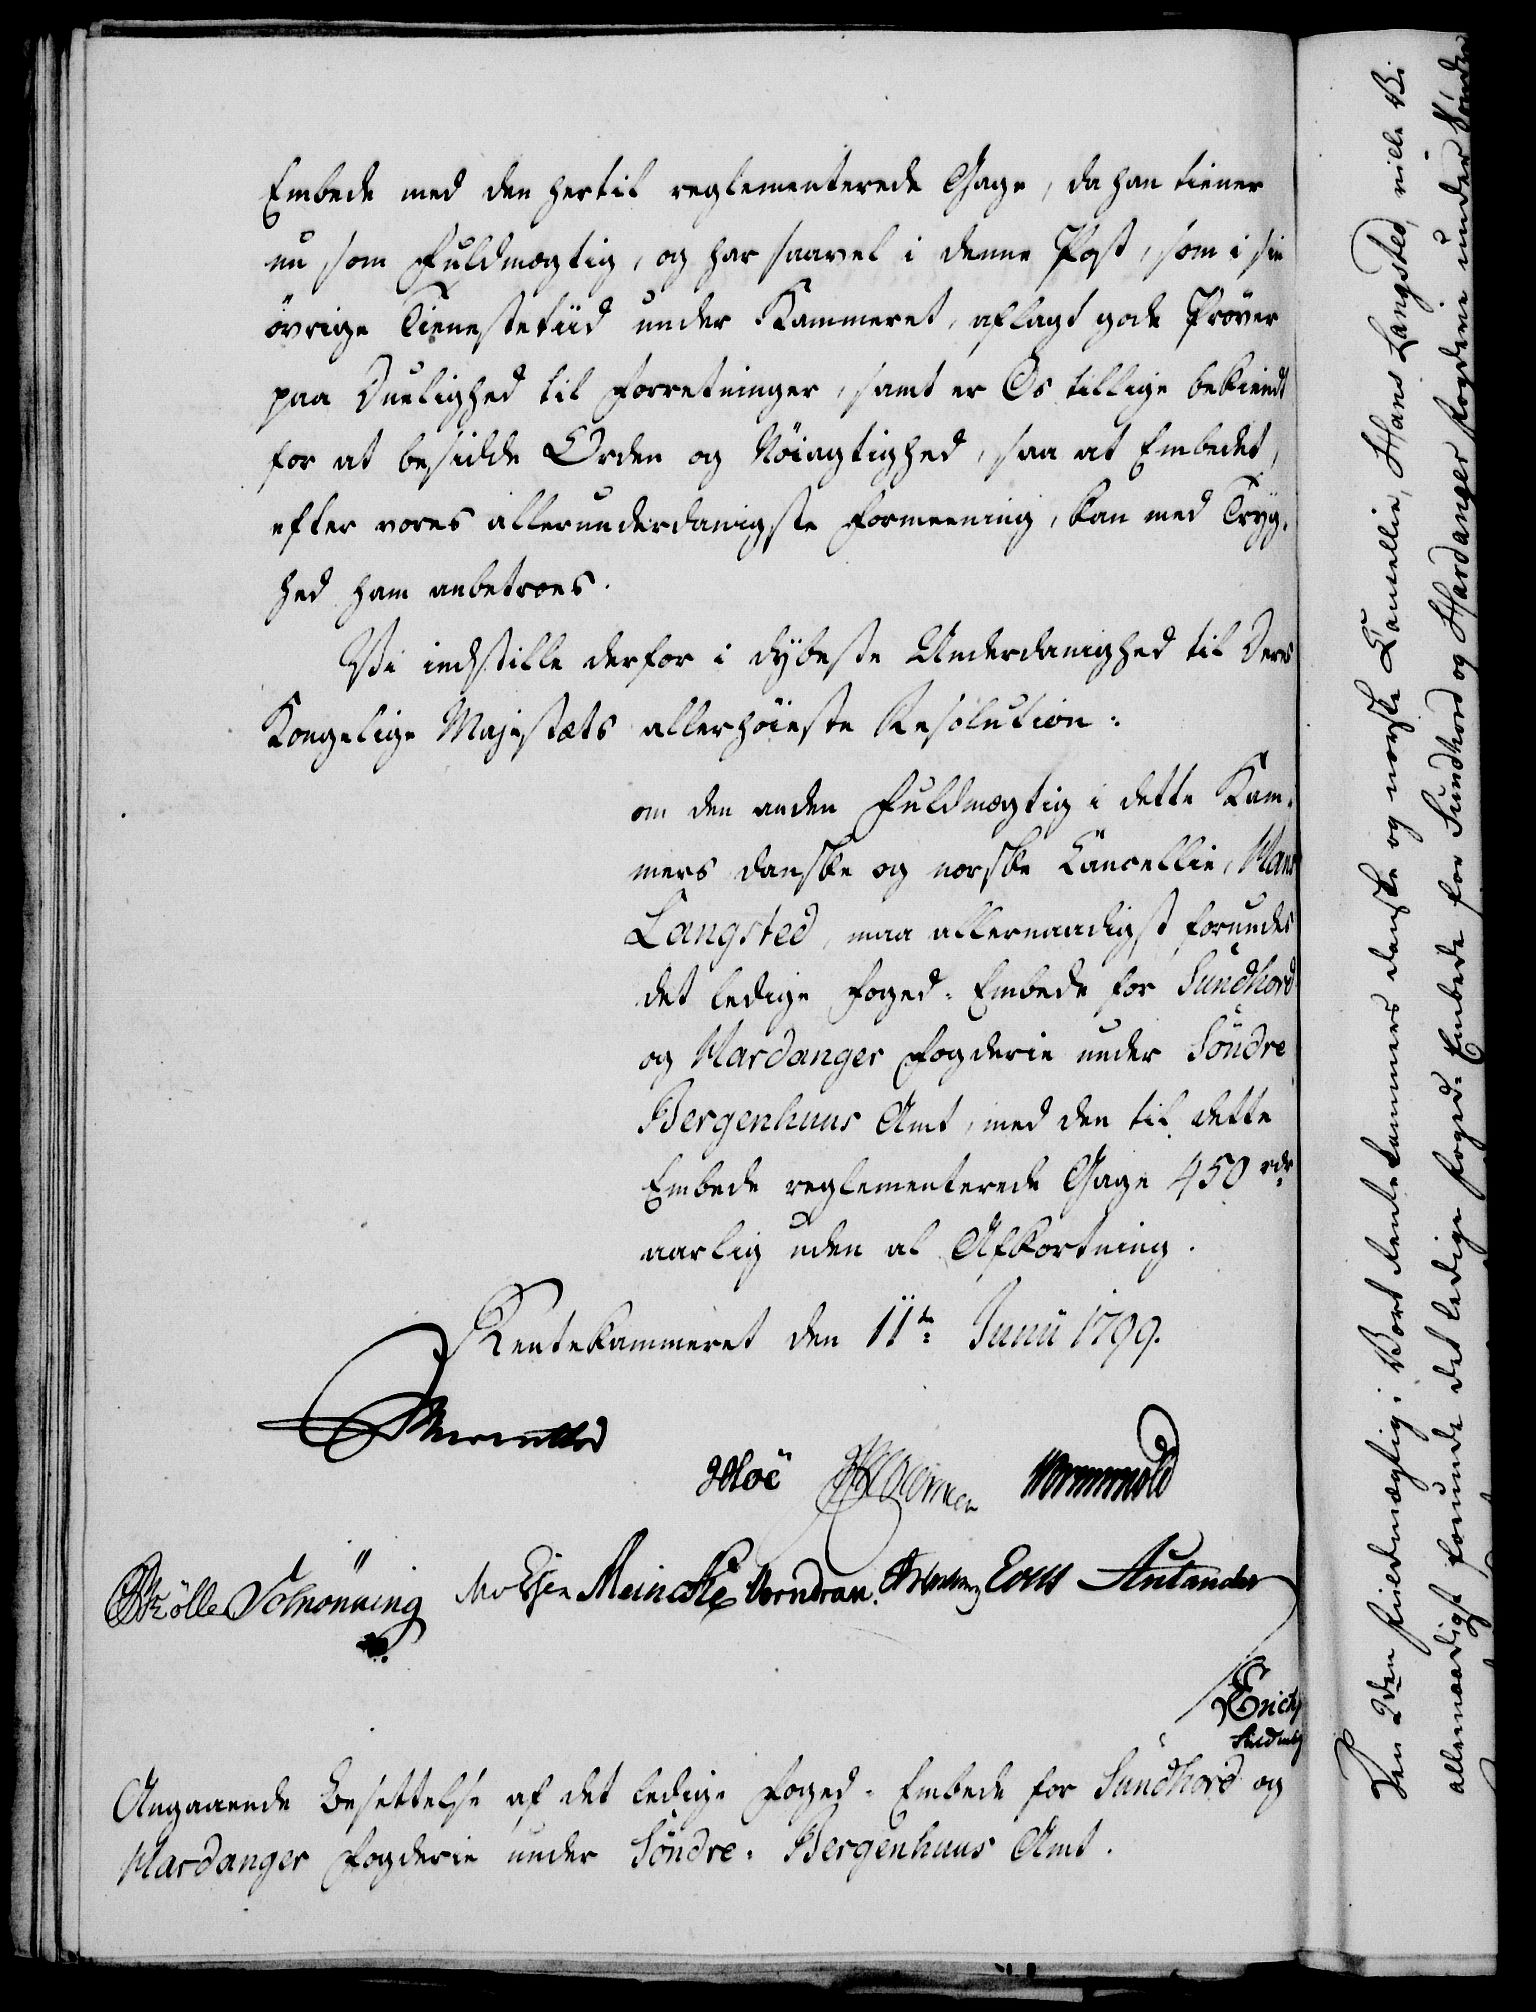 Embede med den hertil reglementerede Gage, da han tiener
nu som Fuldmægtig, og har saavel i denne Post, som i sin
övrige Tienestetiid under Kammeret, aflagt gode Pröver
paa Duelighed til Forretninger, samt er Os tillige bekiendt
for at besidde Orden og Nöiagtighed, saa at Embedet,
efter vores allerunderdanigste Formeening, kan med Tryg-
hed ham anbetroes.
Vi indstille derfor i dybeste Underdanighed til Deres
Kongelige Majestæts allerhöieste Resolution:
om den anden Fuldmægtig i dette Kam-
mers danske og norske Cancellie, Hans
Langsted, maa allernaadigst forundes
det ledige Foged-Embede for Sundhord
og Hardanger Fogderie under Söndre
Bergenhuus Amt, med den til dette
Embede reglementerede Gage 450 rdr
aarlig uden al Afkortning.
Rentekammeret den 11te Junii 1799.
Hoë Wormskiold
Skölle Schrönning Meincke Wormdran Eons Aulander
Erichs
Fuldmæg
Angaaende Besettelse af det ledige Foged-Embede for Sundhord og
Hardanger Fogderie under Söndre-Bergenhuus Amt.
Den 2den Fuldmægtig i Vort Rentekammers danske og norske Cancellie, Hans Langsted, ville Vi
allernaadigst forunde det ledige Foged-Embede for Sundhord og Hardanger Fogderie under Söndre